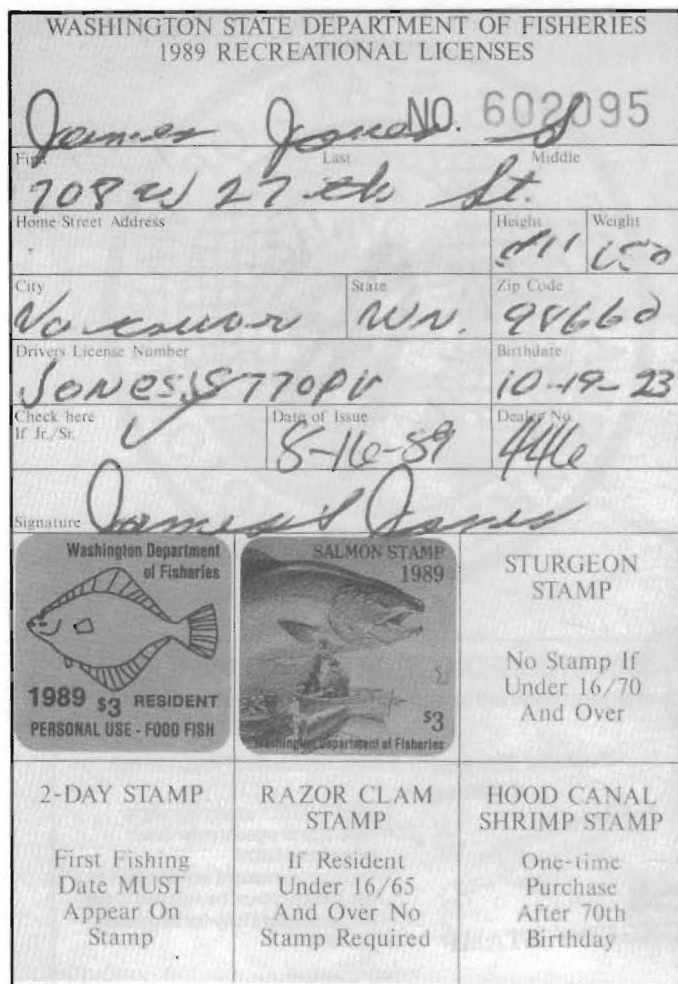 WASHINGTON STATE DEPARTMENT OF FISHERIES
1989 RECREATIONAL LICENSES
NO. 602095
James Jones S
First Last Middle
708 W 27 th St.
Home Street Address Height Weight
5'11 150
City State Zip Code
Vancouver WN. 98660
Drivers License Number Birthdate
JONESJS770PV 10-19-23
Check here
If Jr./Sr. Date of Issue Dealer No.
8-16-89 446
Signature James S Jones
Washington Department
of Fisheries
1989 $3 RESIDENT
PERSONAL USE - FOOD FISH
SALMON STAMP
1989
$3
Washington Department of Fisheries
STURGEON
STAMP
No Stamp If
Under 16/70
And Over
2-DAY STAMP
First Fishing
Date MUST
Appear On
Stamp
RAZOR CLAM
STAMP
If Resident
Under 16/65
And Over No
Stamp Required
HOOD CANAL
SHRIMP STAMP
One-time
Purchase
After 70th
Birthday